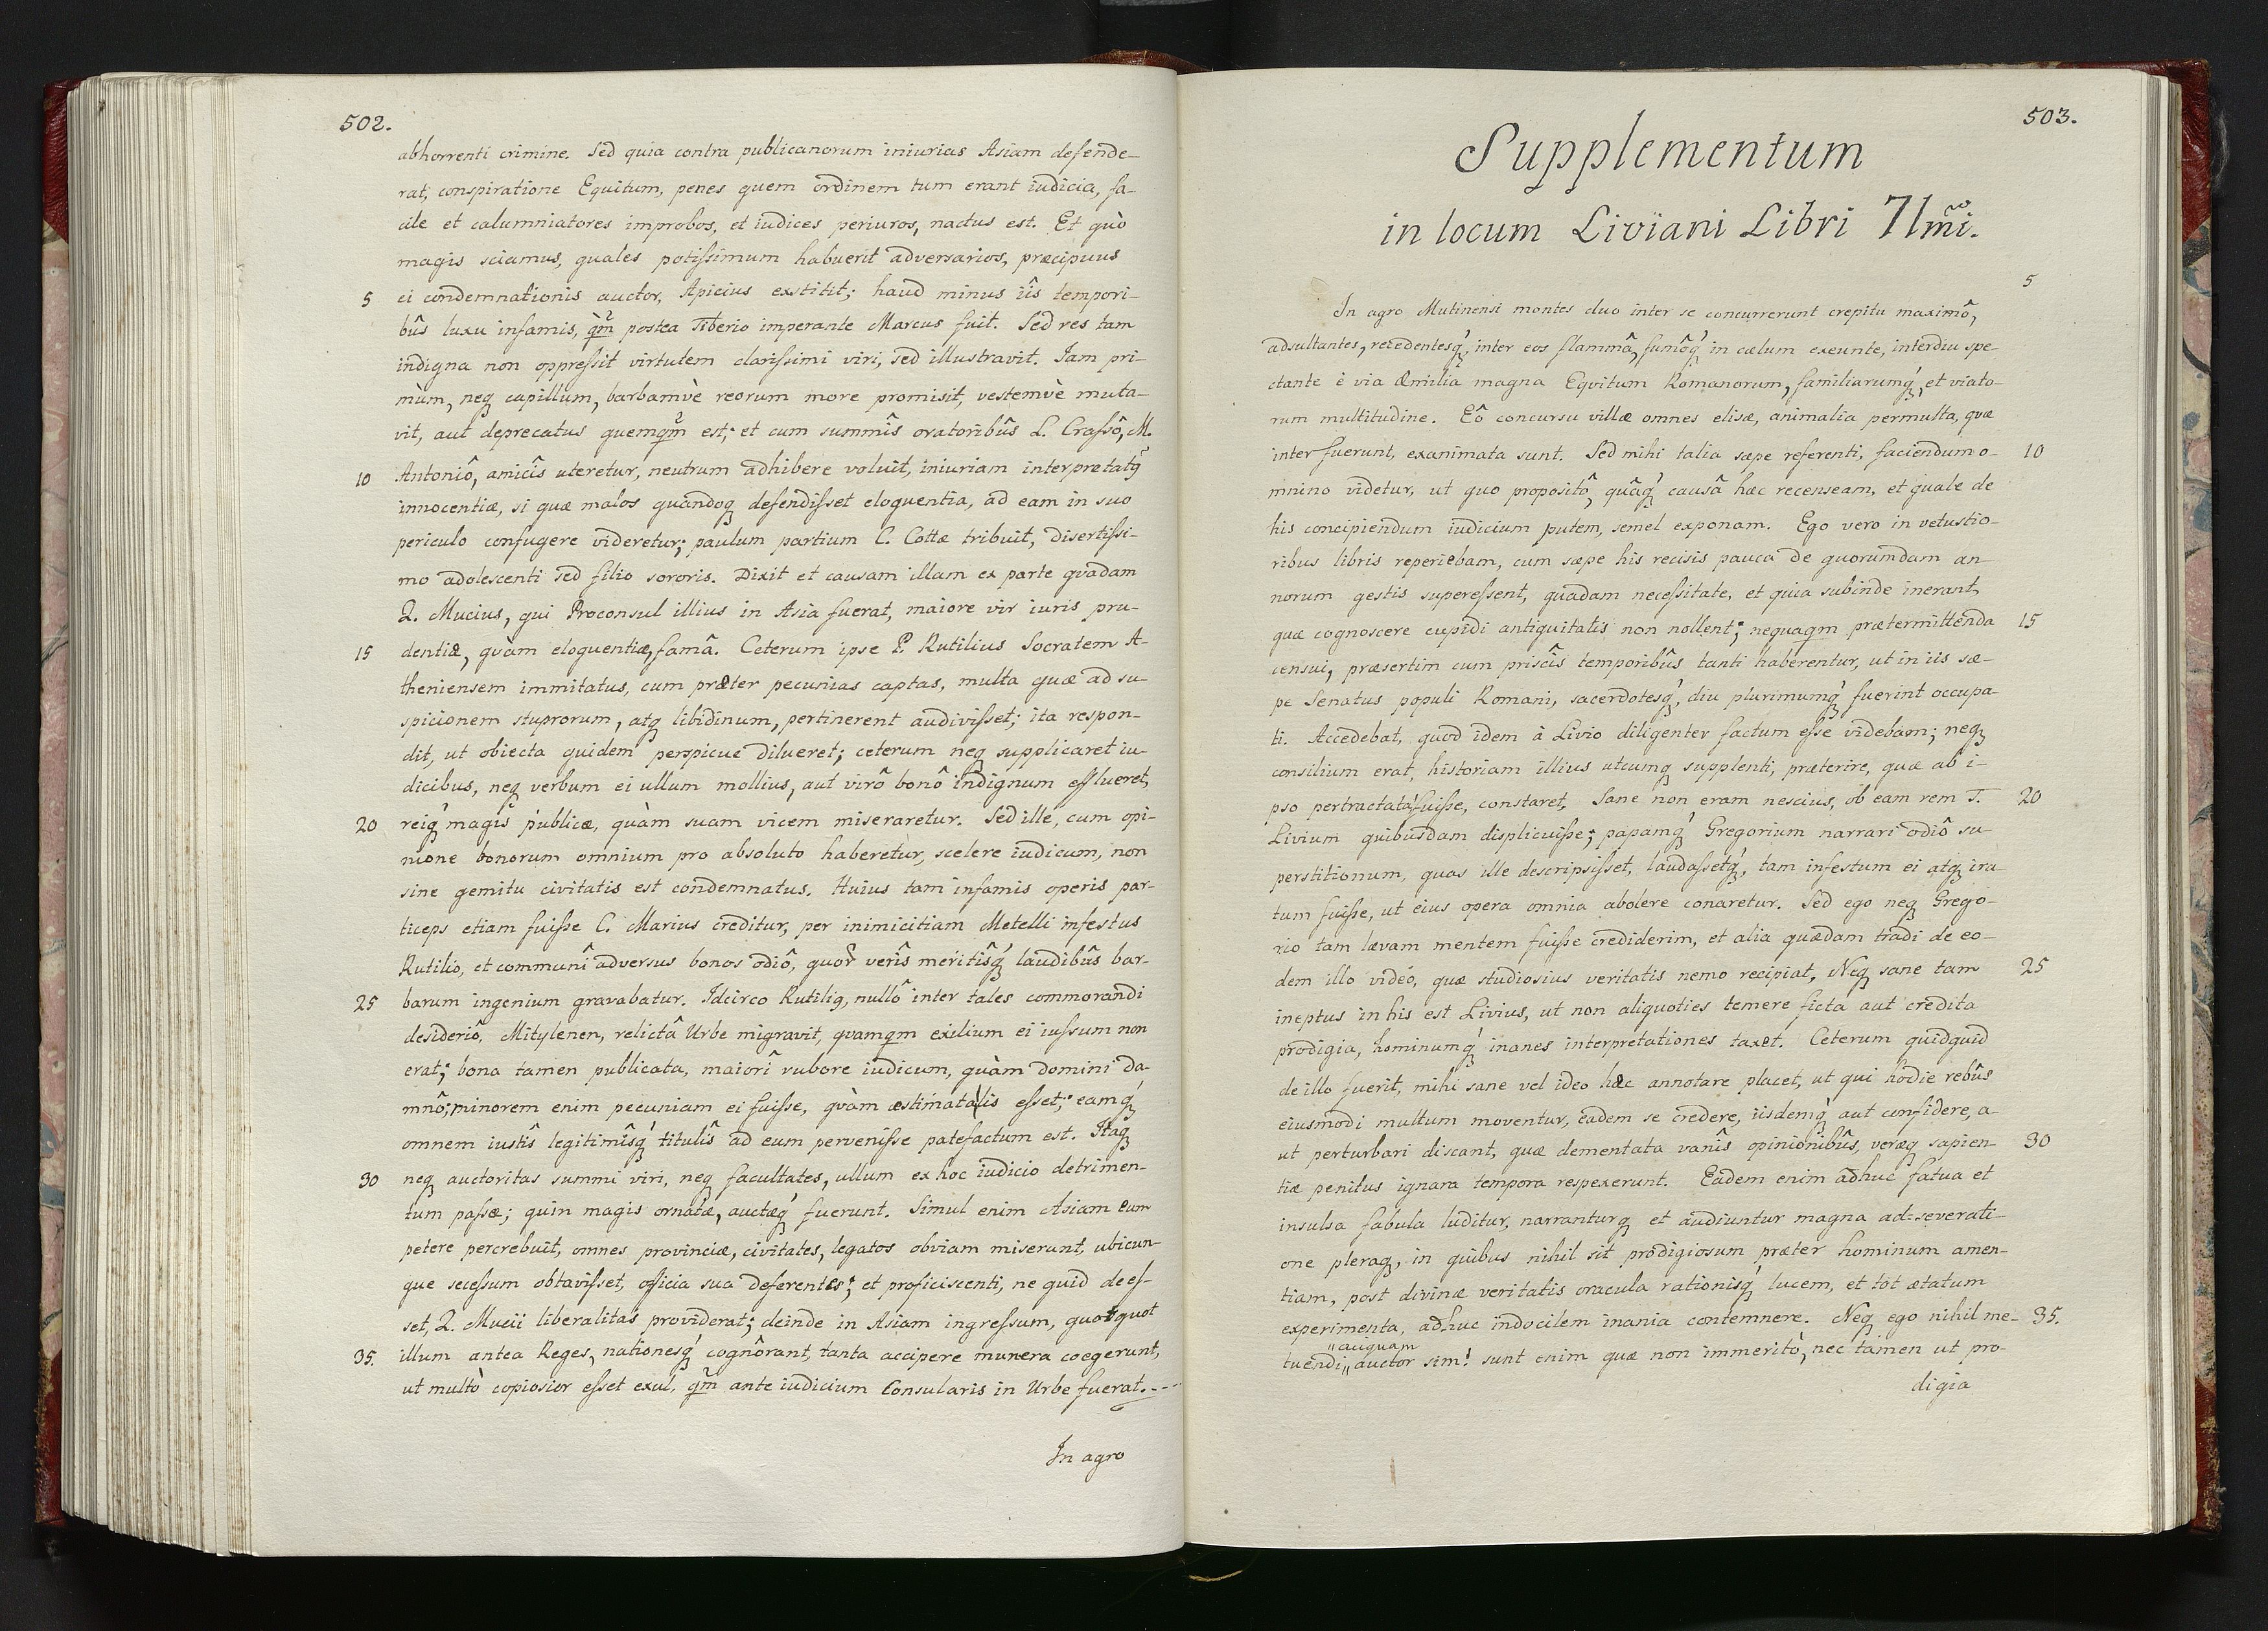 502.
abhorrenti crimine. Sed quia contra publicanorum iniurias Asiam defende-
rat, conspiratione Equitum, penes quem ordinem tum erant iudicia, fa-
cile et calumniatores improbos, et iudices periuros, nactus est. Et quò
magis sciamus, quales potissimum habuerit adversarios, præcipuus
5 ei condemnationis auctor, Apicius exstitit; haud minus iîs tempori-
bûs luxu infamis, q̃m postea Tiberio imperante Marcus fuit. Sed res tam
indigna non oppressit virtutem clarissimi viri, sed illustravit. Iam pri-
mùm, neq capillum, barbamvè reorum more promisit, vestemvè muta-
vit, aut deprecatus quemqm̃ est; et cum summîs oratoribûs L. Crassô, M.
10 Antoniô, amicîs uteretur, neutrum adhibere voluit, iniuriam interpretatq
innocentiæ, si quæ malos quandoq defendisset eloquentia, ad eam in suo
periculo confugere videretur; paulum partium C. Cottæ tribuit, disertissi-
mo adolescenti sed filio sororis. Dixit et causam illam ex parte quadam
Q. Mucius, qui Proconsul illius in Asia fuerat, maiore vir iuris pru-
15 dentiæ, quàm eloquentiæ, famâ. Ceterum ipse P. Rutilius Socratem A-
theniensem immitatus, cum præter pecunias captas, multa quæ ad su-
spicionem stuprorum, atq libidinum, pertinerent audivisset; ita respon-
dit, ut obiecta quidem perspicue dilueret; ceterum neq supplicaret iu-
dicibus, neq verbum ei ullum mollius, aut virô bonô indignum efflueret,
20 reiq́ magis publicæ, quàm suam vicem miseraretur. Sed ille, cum opi-
nione bonorum omnium pro absoluto haberetur, scelere iudicum, non
sine gemitu civitatis est condemnatus. Huius tam infamis operis par-
ticeps etiam fuisse C. Marius creditur, per inimicitiam Metelli infestus
Rutilio, et communî adversus bonos odiô, quor̃ verîs meritîsq́ laudibûs bar-
25 barum ingenium gravabatur. Idcirco Rutiliq, nullô inter tales commorandi
desideriô, Mitylenen, relictâ Urbe migravit, quamqm exilium ei iussum non
erat; bona tamen publicata, maiorî rubore iudicum, quàm domini da-
mnô; minorem enim pecuniam ei fuisse, quàm æstimata lis esset; eamq́
omnem iustîs legitimîsq́ titulîs ad eum pervenisse patefactum est. Itaq
30 neq auctoritas summi viri, neq facultates, ullum ex hoc iudicio detrimen-
tum passæ; quin magis ornatæ, auctæq́ fuerunt. Simul enim Asiam eum
petere percrebuit, omnes provinciæ, civitates, legatos obviam miserunt, ubicun-
que secessum obtavisset, officia sua deferentes; et proficiscenti, ne quid dees-
set, Q. Mucii liberalitas providerat; deinde in Asiam ingressum, quotquot
35. illum antea Reges, nationesq́ cognôrant, tanta accipere munera coegerunt,
ut multò copiosior esset exul, qm̃ ante iudicium Consularis in Urbe fuerat.----
In agro
503.
Supplementum
in locum Liviani Libri 71mi.
5
In agro Mutinensi montes duo inter se concurrerunt crepitu maximô,
adsultantes, recedentesq́, inter eos flammâ, fumôq́ in cælum exeunte, interdiu spe-
ctante è via Æmilia magna Equitum Romanorum, familiarumq́, et viato-
rum multitudine. Eô concursu villæ omnes elisæ, animalia permulta, quæ
inter fuerunt, exanimata sunt. Sed mihi talia sæpe referenti, faciendum o- 10
mnino videtur, ut quo propositô, quâq́ causâ hæc recenseam, et quale de
his concipiendum iudicium putem, semel exponam. Ego vero in vetustio-
ribus libris reperiebam, cum sæpe his recisis pauca de quorumdam an-
norum gestis superessent, quadam necessitate, et quia subinde inerant,
quæ cognoscere cupidi antiquitatis non nollent; nequaqm prætermittenda 15
censui, præsertim cum priscîs temporibûs tanti haberentur, ut in iis sæ-
pe Senatus populi Romani, sacerdotesq́, diu plurimumq́ fuerint occupa-
ti. Accedebat, quod idem à Livio diligenter factum esse videbam; neq
consilium erat, historiam illius utcumq supplenti, præterire, quæ ab i-
pso pertractata fuisse, constaret. Sane non eram nescius, ob eam rem T. 20
Livium quibusdam displicuisse; papamq́ Gregorium narrari odiô su-
perstitionum, quas ille descripsisset, laudassetq́, tam infestum ei atq ira-
tum fuisse, ut eius opera omnia abolere conaretur. Sed ego neq Grego-
rio tam lævam mentem fuisse crediderim, et alia quædam tradi de eo-
dem illo videó, quæ studiosius veritatis nemo recipiat. Neq sane tam 25
ineptus in his est Livius, ut non aliquoties temere ficta aut credita
prodigia, hominumq́ inanes interpretationes taxet. Ceterum quidquid
de illo fuerit, mihi sane vel ideo hæc annotare placet, ut qui hodie rebûs
eiusmodi multum moventur, eadem se credere, iisdemq́ aut confidere, a-
ut perturbari discant, quæ dementata vanîs opinionibûs, veræq sapien- 30
tiæ penitus ignara tempora respexerunt. Eadem enim adhuc fatua et
insulsa fabula luditur, narranturq et audiuntur magna ad-severati-
one pleraq, in quibus nihil sit prodigiosum præter hominum amen-
tiam, post divinæ veritatis oracula rationisq́ lucem, et tot ætatum
experimenta, adhuc indocilem inania contemnere. Neq ego nihil me- 35.
"aliquam
tuendi " auctor sim! sunt enim quæ non immeritò, nec tamen ut pro-
digia